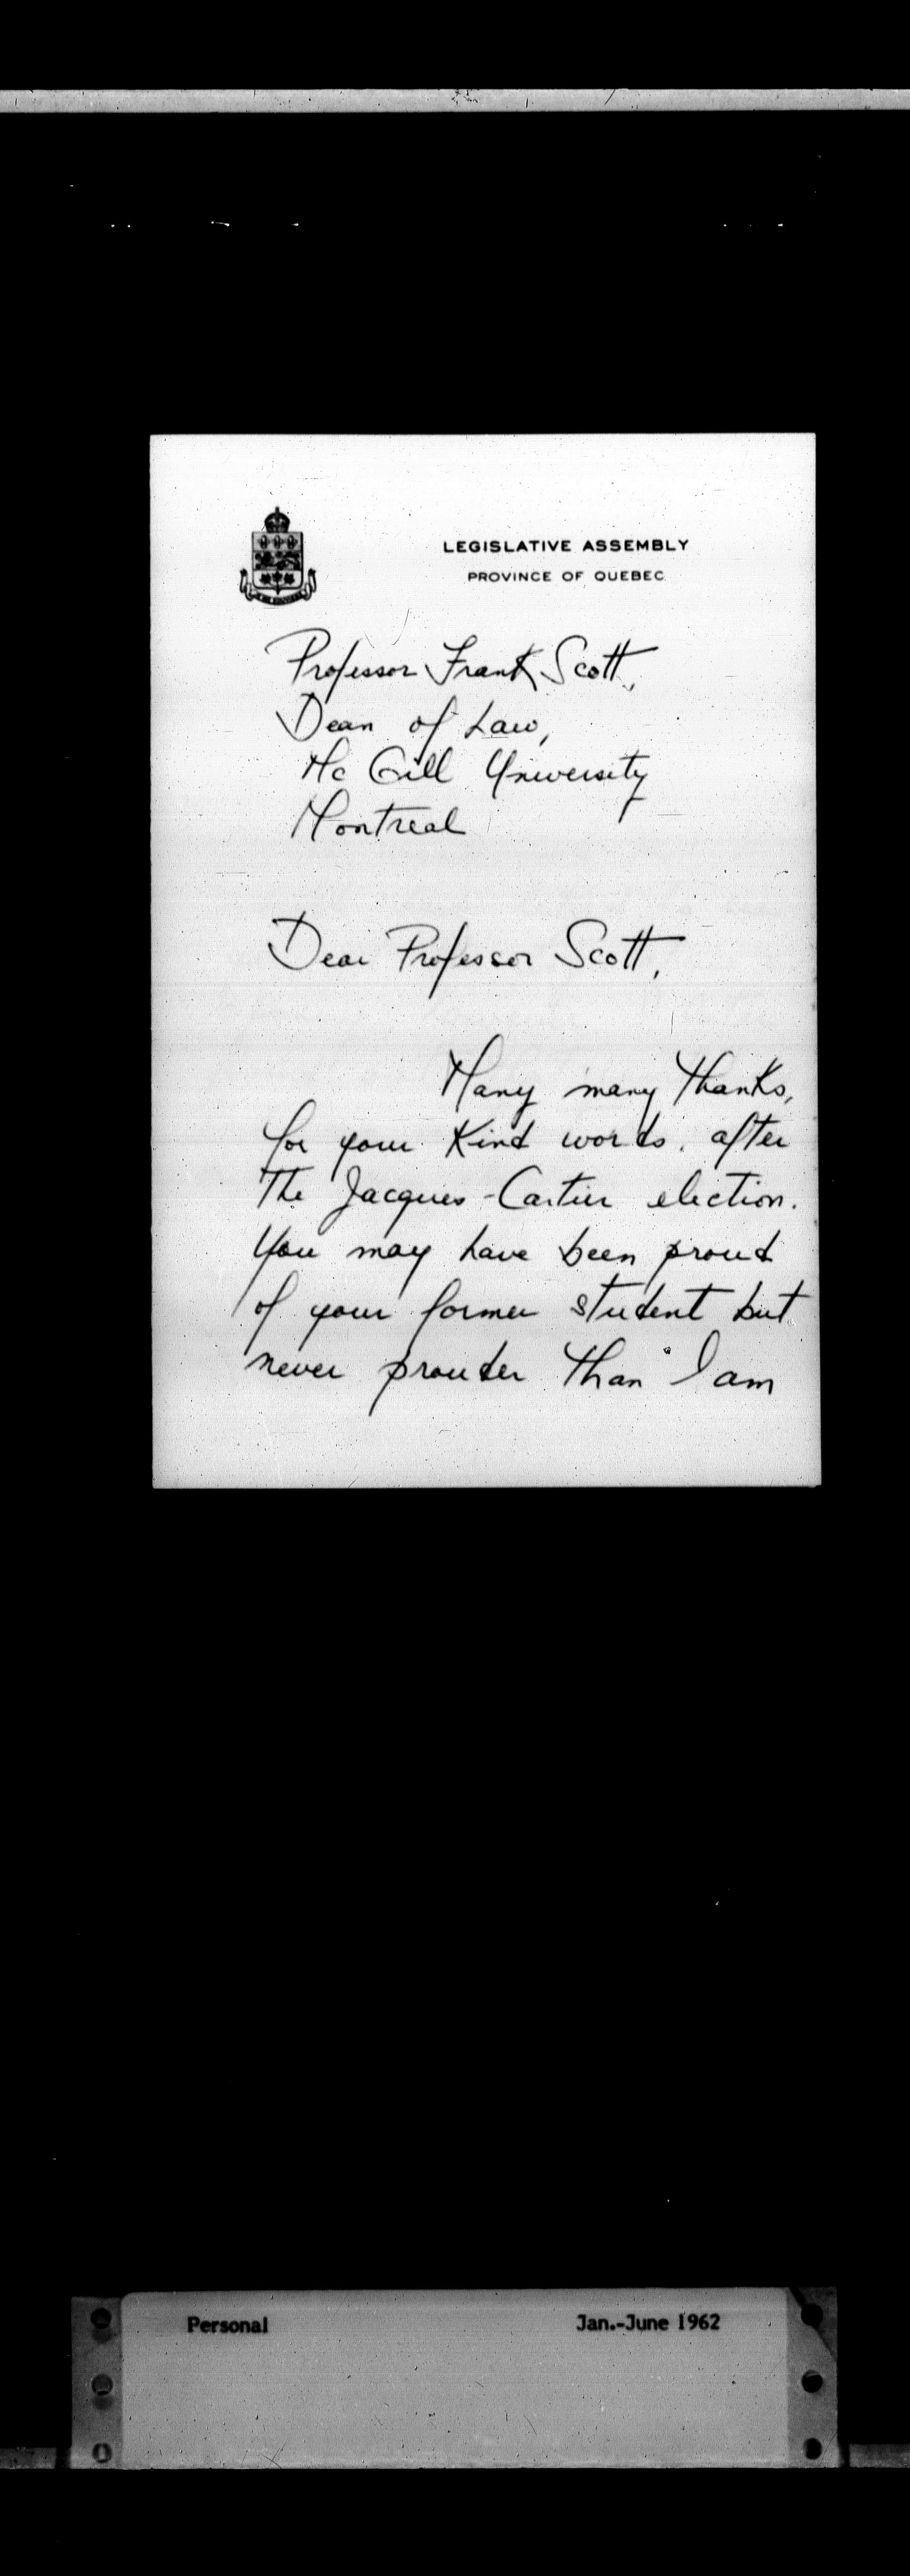 LEGISLATIVE ASSEMBLY
PROVINCE OF QUEBEC
Professor Frank Scott,
Dean of Law,
Mc Gill University
Montreal
Dear Professor Scott,
Many many thanks,
for your kind words, after
the Jacques-Cartier election.
You may have been proud
of your former student but
never prouder than I am
Personal
Jan.-June 1962